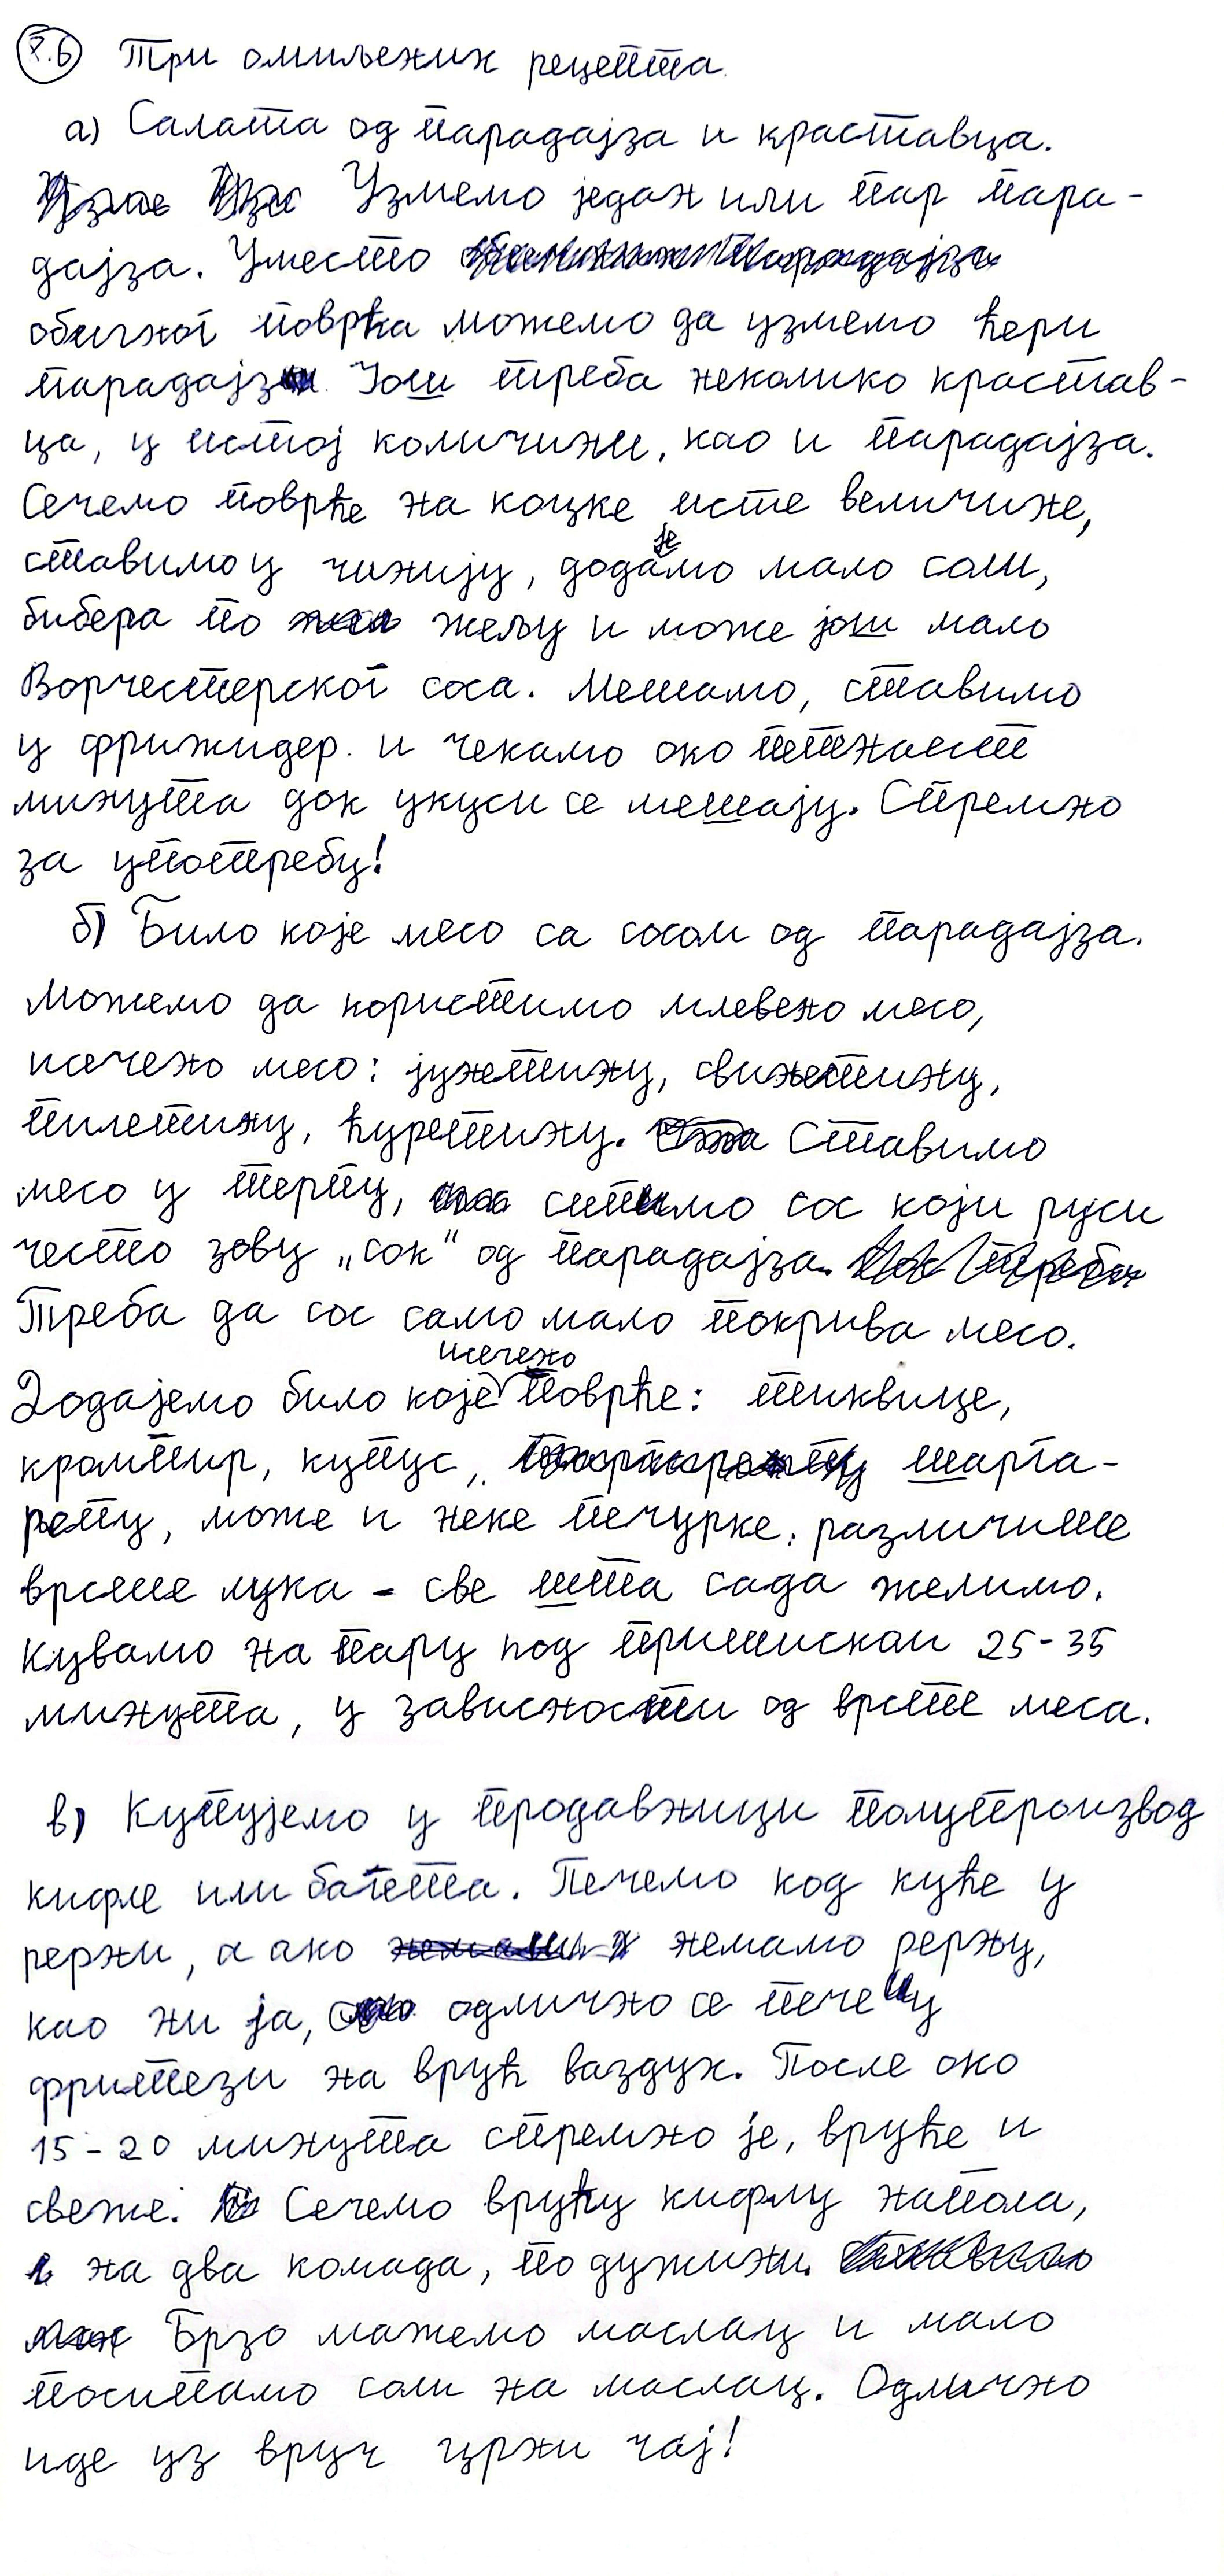 7.6 Три омиљених рецепта.
а) Салата од парадајза и краставца.
Узмемо један или пар пара-
дајза. Уместо
обичног поврћа можемо да узмемо ћери
парадајз. Још треба неколико крастав-
ца, у истој количини, као и парадајза.
Сечемо поврће на коцке исте величине,
ставимо у чинију, додајемо мало соли,
бибера по жељу и може још мало
Ворчестерског соса. Мешамо, ставимо
у фрижидер. и чекамо око петнаест
минута док укуси се мешају. Спремно
за употребу!
б) Било које месо са сосом од парадајза.
Можемо да користимо млевено месо,
исечено месо: јунетину, свињетину,
пилетину, ћуретину. Ставимо
месо у шерпу, сипимо сос који руси
често зову „сок“ од парадајза.
Треба да сос само мало покрива месо.
Додајемо било које исечено поврће: тиквице,
кромпир, купус, шарга-
репу, може и неке печурке, различите
врсте лука - све шта сада желимо.
Кувамо на пару под притиском 25-35
минута, у зависности од врсте меса.
в) Купујемо у продавници полупроизвод
кифле или багета. Печемо код куће у
рерни, а ако немамо рерну,
као ни ја, одлично се пече у
фритези на врућ ваздух. После око
15-20 минута спремно је, вруће и
свеже. Сечемо врућу кифлу напола,
на два комада, по дужини.
Брзо мажемо маслац и мало
посипамо соли на маслац. Одлично
иде уз вруч црни чај!